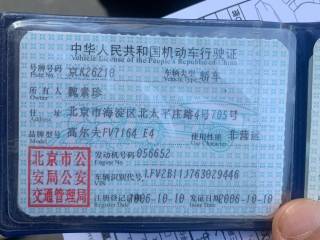 中华人民共和国机动车行驶证
Vehicle License of the People's Republic of China
号牌号码 京K26Z10 车辆类型 轿车
Plate No.
所有人 魏素珍
Owner
住址 北京市海淀区北太平庄路4号705号
Address
品牌型号 高尔夫FV7164 E4 使用性质 非营运
Model
北京市公
安局公安
交通管理局
发动机号码 056652
Engine No.
车辆识别代号 LFV2B11J763029446
VIN
注册登记日期 2006-10-10 发证日期 2006-10-10
Register Date Issue Date